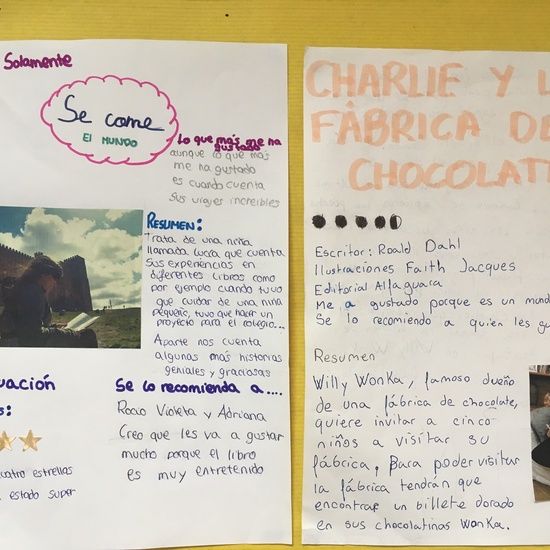 Solamente
Se come
El MUNDO
Lo que más me ha
gustado
aunque lo que más
me ha gustado
es cuando cuenta
sus viajes increíbles
RESUMEN:
trata de una niña
llamada Lucca que cuenta
sus experiencias en
diferentes libros como
por ejemplo cuando tuvo
que cuidar de una niña
pequeña, tuvo que hacer un
proyecto para el colegio...
Aparte nos cuenta
algunas más historias
geniales y graciosas
uación
s:
cuatro estrellas
estado super
Se lo recomienda a....
Rocío Violeta y Adriana
Creo que les va a gustar
mucho porque el libro
es muy entretenido
CHARLIE Y L
FÁBRICA DE
CHOCOLAT
Escritor: Roald Dahl
Ilustraciones Faith Jacques
Editorial Alfaguara
Me a gustado porque es un mund
Se lo recomiendo a quien les gu
Resumen
Willy Wonka, famoso dueño
de una fábrica de chocolate,
quiere invitar a cinco
niños a visitar su
fábrica, Para poder visitar
la fábrica tendrán que
encontrar un billete dorado
en sus chocolatinas Wonka.